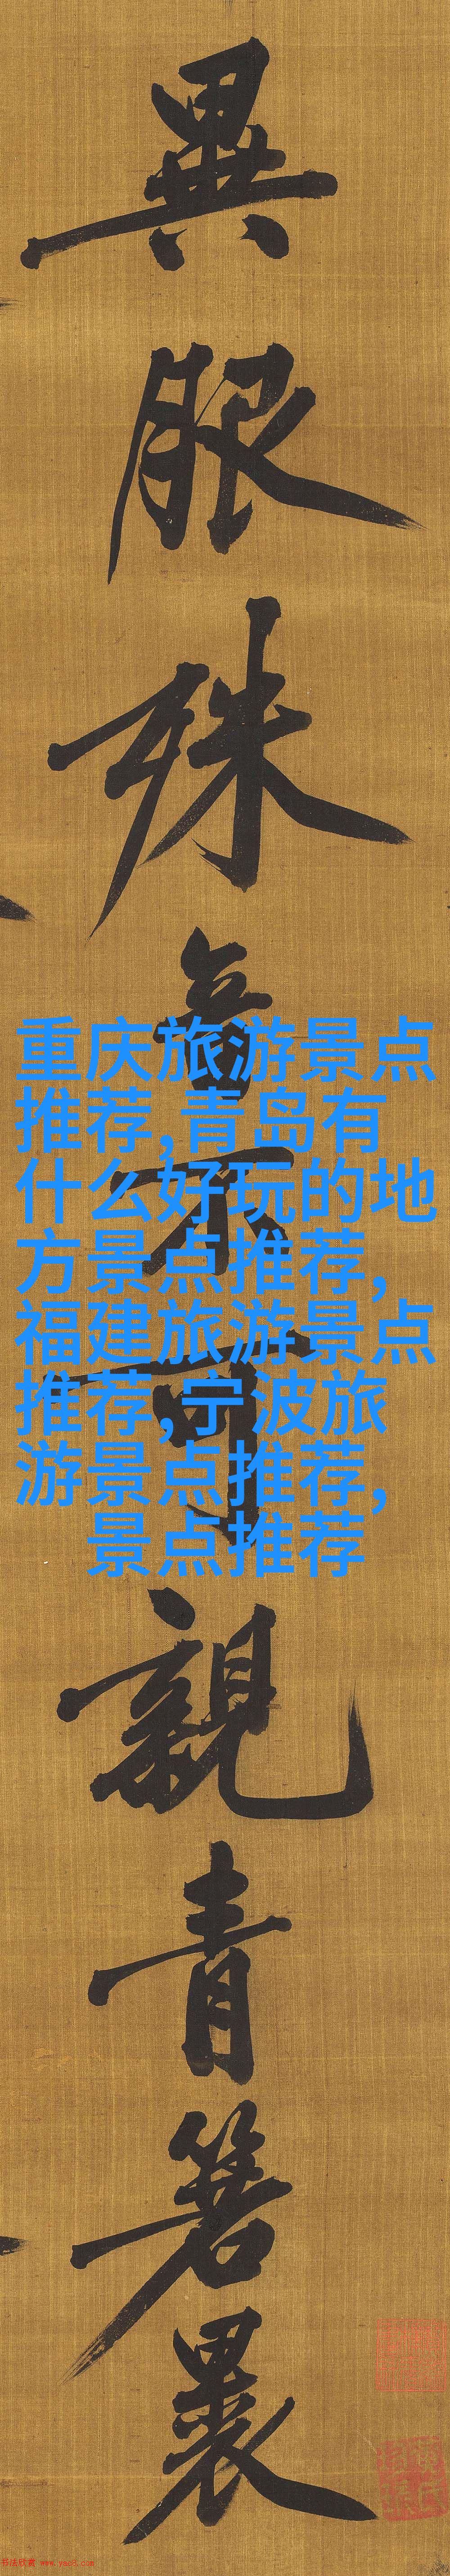 異服殊音不可親青箬裹
重庆旅游景点
推荐,青岛有
什么好玩的地
方景点推荐,
福建旅游景点
推荐,宁波旅
游景点推荐,
景点推荐
书法欣赏 www.yac8.com